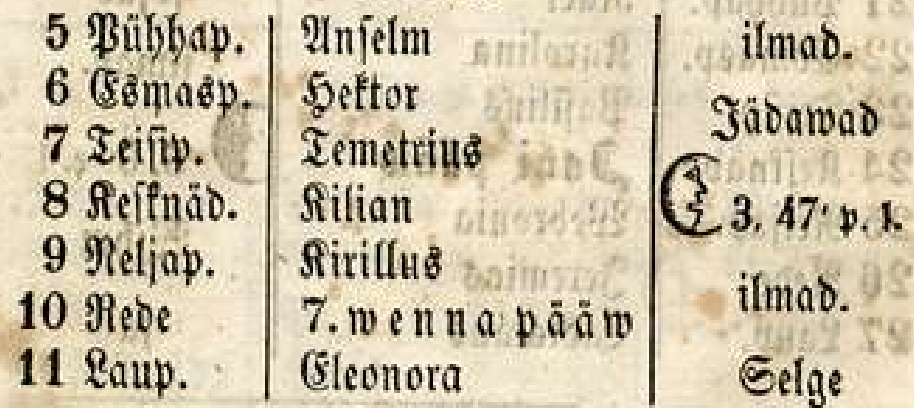 5 Pühhap. Anselm ilmad.
6 Esmasp. Hektor Jädawad
7 Teisip. Temetrius
8 Kesknäd. Kilian 3, 47' p. l.
9 Neljap. Kirillus
10 Rede 7. wenna pääw ilmad.
11 Laup. Eleonora Selge